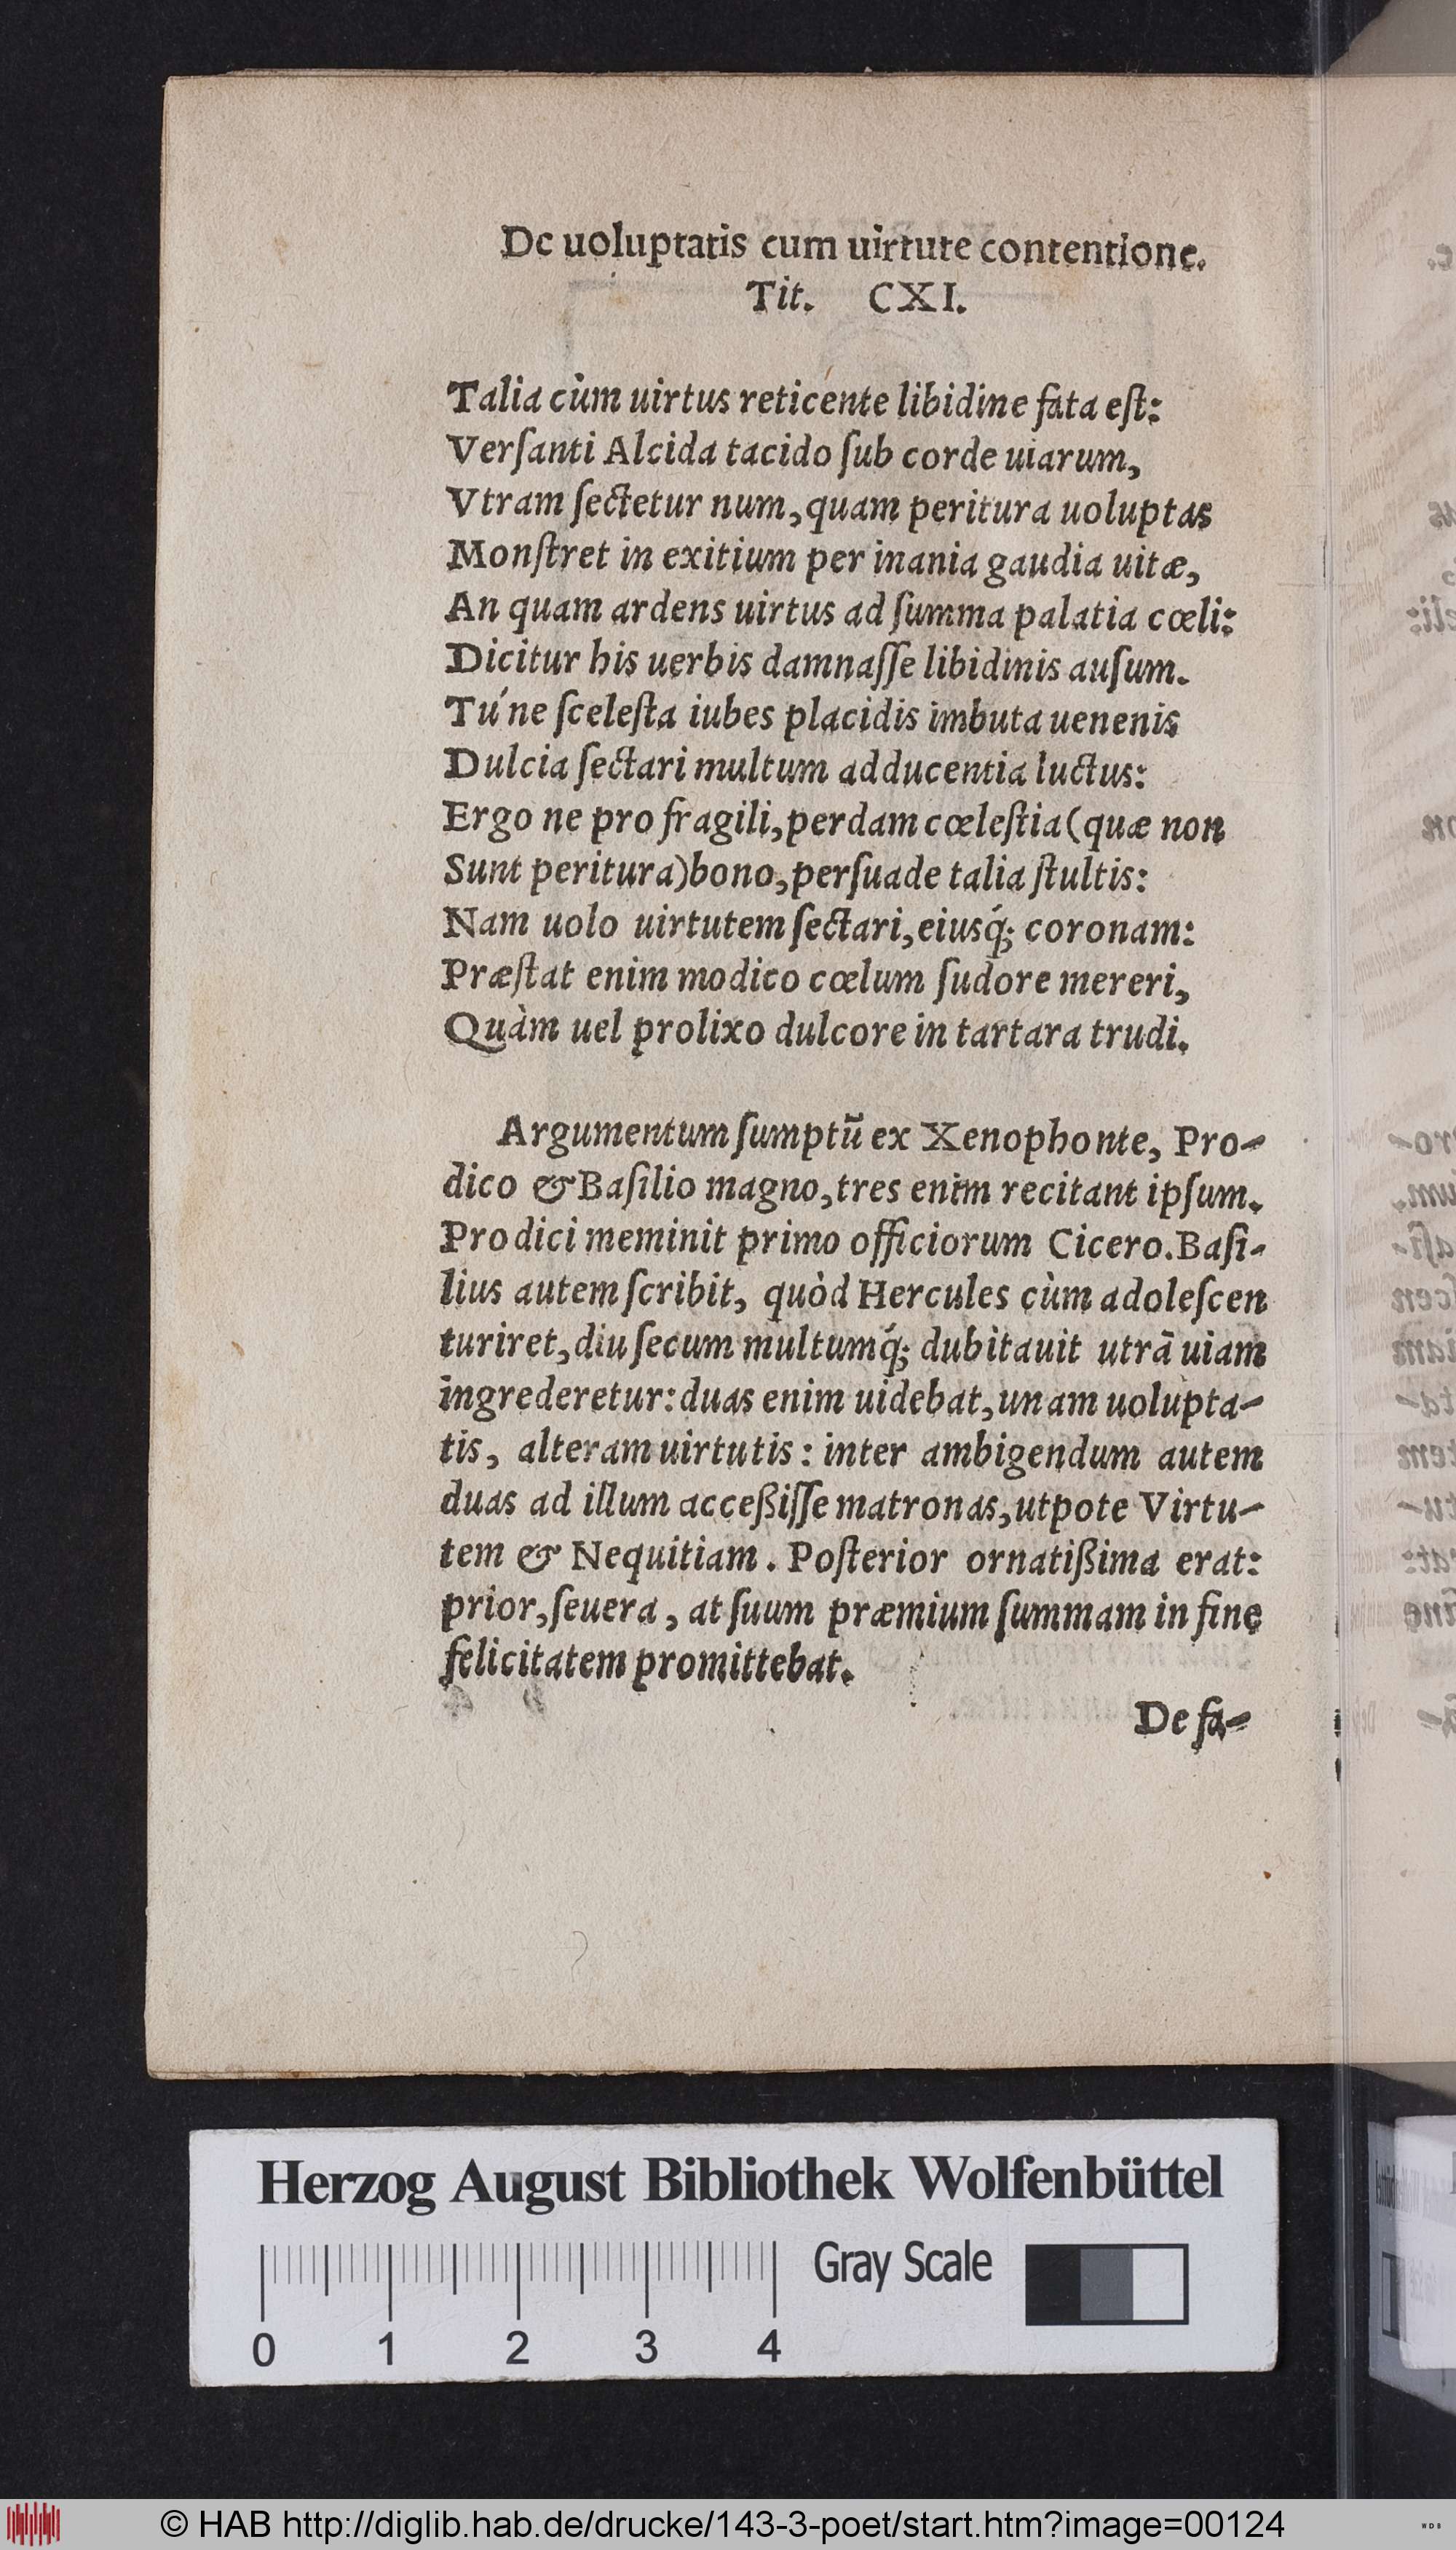 De uoluptatis cum uirtute contentione.
Tit. CXI.
Talia cùm uirtus reticente libidine fata eſt:
Verſanti Alcida tacido ſub corde uiarum,
Vtram ſectetur num, quam peritura uoluptas
Monſtret in exitium per inania gaudia uitæ,
An quam ardens uirtus ad ſumma palatia cœli:
Dicitur his uerbis damnaſſe libidinis auſum.
Tú ne ſceleſta iubes placidis imbuta uenenis
Dulcia ſectari multum adducentia luctus:
Ergo ne pro fragili, perdam cœleſtia (quæ non
Sunt peritura) bono, perſuade talia ſtultis:
Nam uolo uirtutem ſectari, eiusq́; coronam:
Præſtat enim modico cœlum ſudore mereri,
Quàm uel prolixo dulcore in tartara trudi.
Argumentum ſumptũ ex Xenophonte, Pro-
dico & Baſilio magno, tres enim recitant ipſum.
Prodici meminit primo officiorum Cicero. Baſi-
lius autem ſcribit, quòd Hercules cùm adoleſcen
turiret, diu ſecum multumq́; dubitauit utrã uiam
ingrederetur: duas enim uidebat, unam uolupta-
tis, alteram uirtutis: inter ambigendum autem
duas ad illum acceßiſſe matronas, utpote Virtu-
tem & Nequitiam. Poſterior ornatißima erat:
prior, ſeuera, at ſuum præmium ſummam in fine
felicitatem promittebat.
De fa-
Herzog August Bibliothek Wolfenbüttel
Gray Scale
0 1 2 3 4
© HAB http://diglib.hab.de/drucke/143-3-poet/start.htm?image=00124